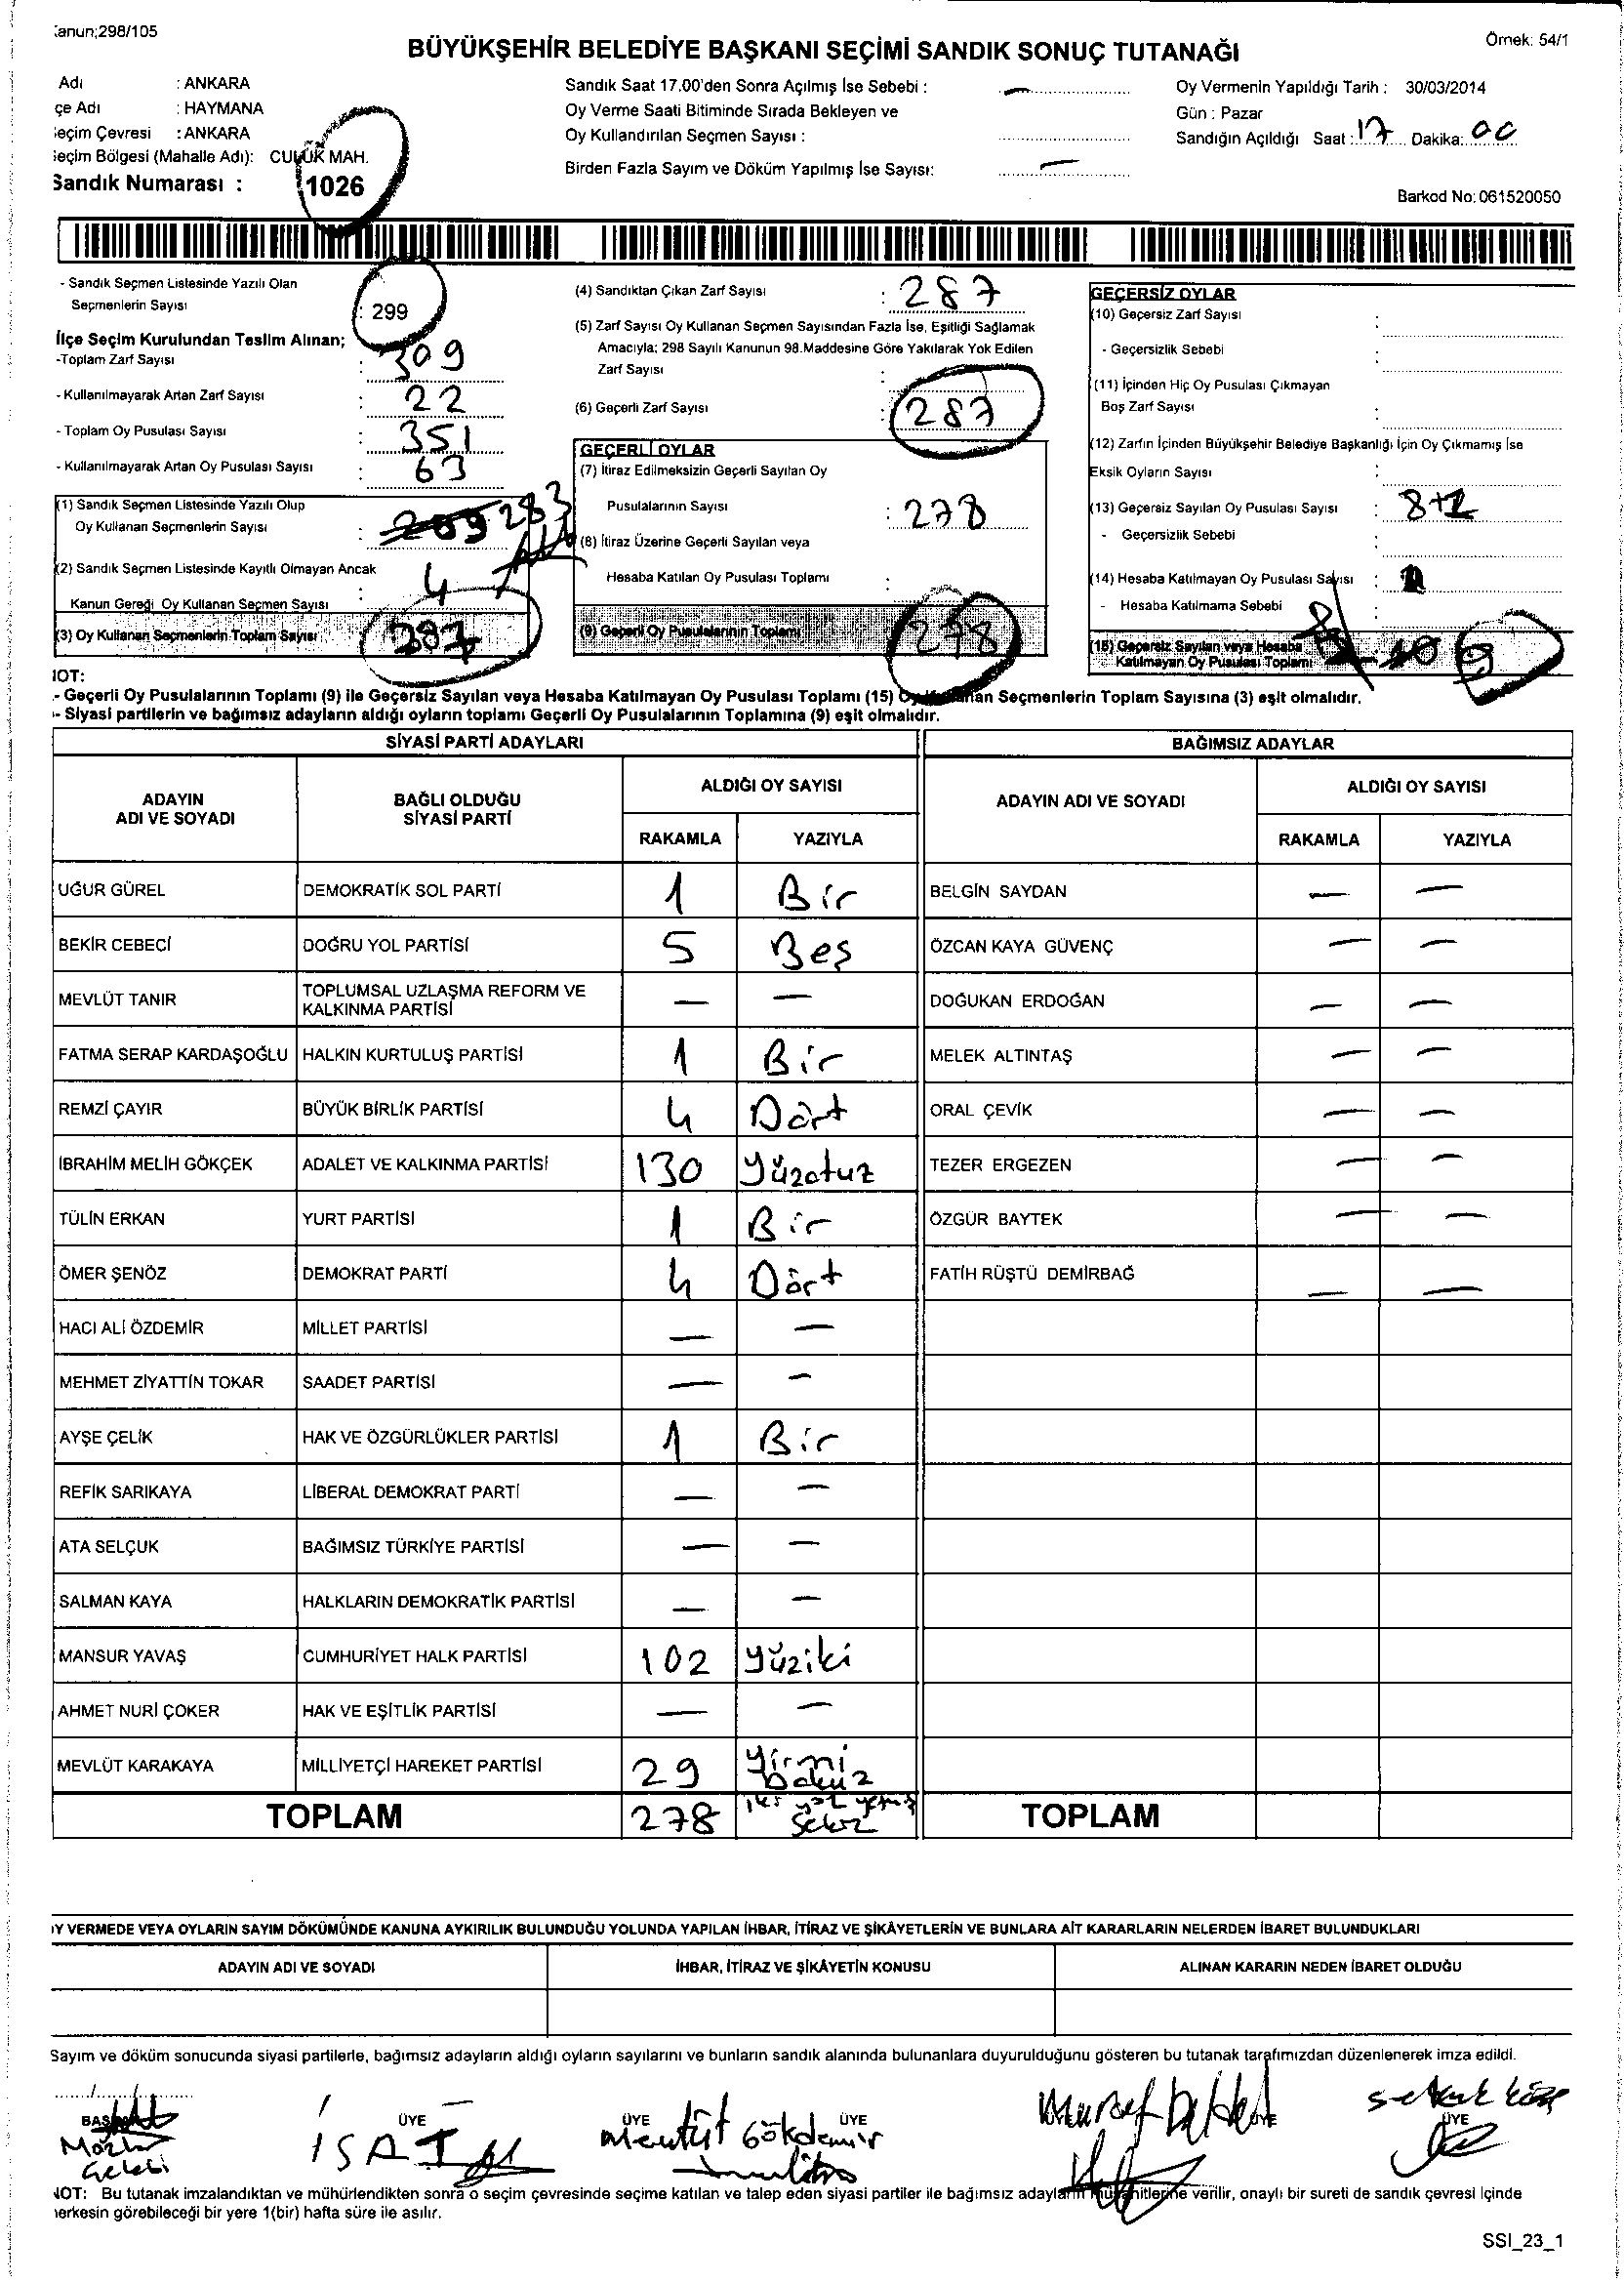 anun;298/105
Örnek: 54/1
BÜYÜKŞEHİR BELEDİYE BAŞKANI SEÇİMİ SANDIK SONUÇ TUTANAĞI
Adı : ANKARA
çe Adı : HAYMANA
eçim Çevresi : ANKARA
eçim Bölgesi (Mahalle Adı): CULUK MAH.
Sandık Numarası : 1026
Sandık Saat 17.00'den Sonra Açılmış İse Sebebi : —
Oy Verme Saati Bitiminde Sırada Bekleyen ve
Oy Kullandırılan Seçmen Sayısı :
Birden Fazla Sayım ve Döküm Yapılmış İse Sayısı: —
Oy Vermenin Yapıldığı Tarih : 30/03/2014
Gün : Pazar
Sandığın Açıldığı Saat : 17 Dakika: 00
Barkod No: 061520050
- Sandık Seçmen Listesinde Yazılı Olan
Seçmenlerin Sayısı : 299
İlçe Seçim Kurulundan Teslim Alınan;
-Toplam Zarf Sayısı : 309
- Kullanılmayarak Artan Zarf Sayısı : 22
- Toplam Oy Pusulası Sayısı : 351
- Kullanılmayarak Artan Oy Pusulası Sayısı : 63
(1) Sandık Seçmen Listesinde Yazılı Olup
Oy Kullanan Seçmenlerin Sayısı : 283
(2) Sandık Seçmen Listesinde Kayıtlı Olmayan Ancak
Kanun Gereği Oy Kullanan Seçmen Sayısı : 4
(3) Oy Kullanan Seçmenlerin Toplam Sayısı 287
(4) Sandıktan Çıkan Zarf Sayısı : 287
(5) Zarf Sayısı Oy Kullanan Seçmen Sayısından Fazla İse, Eşitliği Sağlamak
Amacıyla; 298 Sayılı Kanunun 98.Maddesine Göre Yakılarak Yok Edilen
Zarf Sayısı :
(6) Geçerli Zarf Sayısı : 287
GEÇERLİ OYLAR
(7) İtiraz Edilmeksizin Geçerli Sayılan Oy
Pusulalarının Sayısı : 278
(8) İtiraz Üzerine Geçerli Sayılan veya
Hesaba Katılan Oy Pusulası Toplamı :
(9) Geçerli Oy Pusulalarının Toplamı 278
GEÇERSİZ OYLAR
(10) Geçersiz Zarf Sayısı :
- Geçersizlik Sebebi :
(11) İçinden Hiç Oy Pusulası Çıkmayan
Boş Zarf Sayısı :
(12) Zarfın İçinden Büyükşehir Belediye Başkanlığı İçin Oy Çıkmamış İse
Eksik Oyların Sayısı :
(13) Geçersiz Sayılan Oy Pusulası Sayısı :
- Geçersizlik Sebebi :
(14) Hesaba Katılmayan Oy Pusulası Sayısı :
- Hesaba Katılmama Sebebi :
(15) Geçersiz Sayılan veya Hesaba
Katılmayan Oy Pusulası Toplamı 9
IOT:
.- Geçerli Oy Pusulalarının Toplamı (9) ile Geçersiz Sayılan veya Hesaba Katılmayan Oy Pusulası Toplamı (15) Oy Kullanan Seçmenlerin Toplam Sayısına (3) eşit olmalıdır.
- Siyasi partilerin ve bağımsız adayların aldığı oyların toplamı Geçerli Oy Pusulalarının Toplamına (9) eşit olmalıdır.
SİYASİ PARTİ ADAYLARI BAĞIMSIZ ADAYLAR
ADAYIN ADI VE SOYADI BAĞLI OLDUĞU SİYASİ PARTİ ALDIĞI OY SAYISI ADAYIN ADI VE SOYADI ALDIĞI OY SAYISI
RAKAMLA YAZIYLA RAKAMLA YAZIYLA
UĞUR GÜREL DEMOKRATİK SOL PARTİ 1 Bir BELGİN SAYDAN — —
BEKİR CEBECİ DOĞRU YOL PARTİSİ 5 Beş ÖZCAN KAYA GÜVENÇ — —
MEVLÜT TANIR TOPLUMSAL UZLAŞMA REFORM VE KALKINMA PARTİSİ — — DOĞUKAN ERDOĞAN — —
FATMA SERAP KARDAŞOĞLU HALKIN KURTULUŞ PARTİSİ 1 Bir MELEK ALTINTAŞ — —
REMZİ ÇAYIR BÜYÜK BİRLİK PARTİSİ 4 Dört ORAL ÇEVİK — —
İBRAHİM MELİH GÖKÇEK ADALET VE KALKINMA PARTİSİ 130 Yüzotuz TEZER ERGEZEN — —
TÜLİN ERKAN YURT PARTİSİ 1 Bir ÖZGÜR BAYTEK — —
ÖMER ŞENÖZ DEMOKRAT PARTİ 4 Dört FATİH RÜŞTÜ DEMİRBAĞ — —
HACI ALİ ÖZDEMİR MİLLET PARTİSİ — —
MEHMET ZİYATTİN TOKAR SAADET PARTİSİ — —
AYŞE ÇELİK HAK VE ÖZGÜRLÜKLER PARTİSİ 1 Bir
REFİK SARIKAYA LİBERAL DEMOKRAT PARTİ — —
ATA SELÇUK BAĞIMSIZ TÜRKİYE PARTİSİ — —
SALMAN KAYA HALKLARIN DEMOKRATİK PARTİSİ — —
MANSUR YAVAŞ CUMHURİYET HALK PARTİSİ 102 Yüziki
AHMET NURİ ÇOKER HAK VE EŞİTLİK PARTİSİ — —
MEVLÜT KARAKAYA MİLLİYETÇİ HAREKET PARTİSİ 29 Yirmi Dokuz
TOPLAM 278 iki yüz yetmiş Sekiz TOPLAM
Y VERMEDE VEYA OYLARIN SAYIM DÖKÜMÜNDE KANUNA AYKIRILIK BULUNDUĞU YOLUNDA YAPILAN İHBAR, İTİRAZ VE ŞİKÂYETLERİN VE BUNLARA AİT KARARLARIN NELERDEN İBARET BULUNDUKLARI
ADAYIN ADI VE SOYADI İHBAR, İTİRAZ VE ŞİKÂYETİN KONUSU ALINAN KARARIN NEDEN İBARET OLDUĞU
Sayım ve döküm sonucunda siyasi partilerle, bağımsız adayların aldığı oyların sayılarını ve bunların sandık alanında bulunanlara duyurulduğunu gösteren bu tutanak tarafımızdan düzenlenerek imza edildi.
ÜYE ÜYE ÜYE ÜYE ÜYE
İSA Mevlüt Gökdemir
IOT: Bu tutanak imzalandıktan ve mühürlendikten sonra o seçim çevresinde seçime katılan ve talep eden siyasi partiler ile bağımsız adayların müşahitlerine verilir, onaylı bir sureti de sandık çevresi içinde
erkesin görebileceği bir yere 1(bir) hafta süre ile asılır.
SSI_23_1